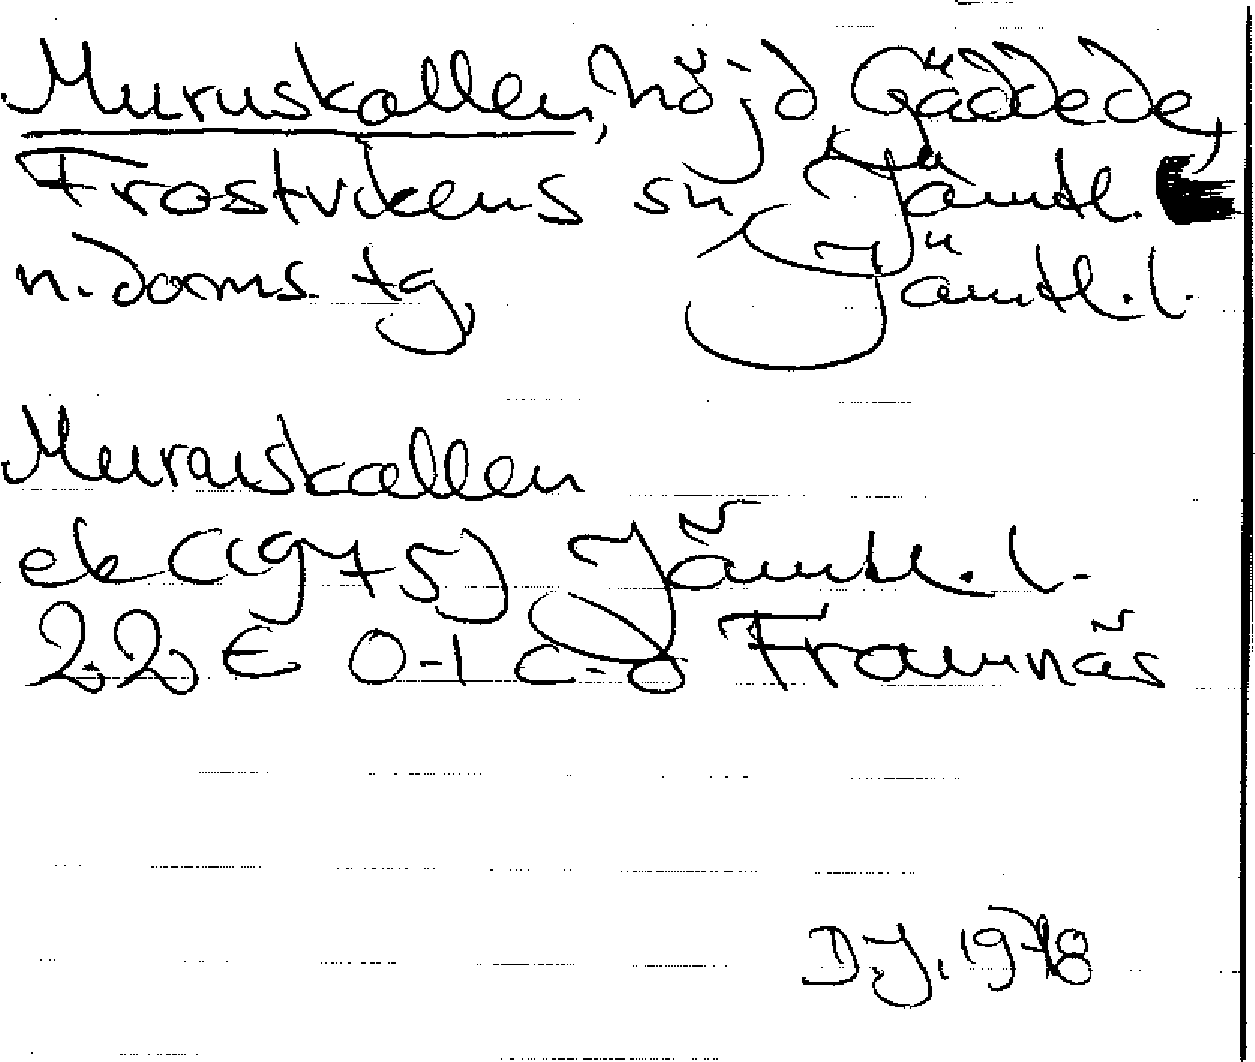 Muruskallen, höjd Gäddede,
Frostvikens sn, Jämtl.
n. doms. tg, Jämtl. l.
Muruskallen
ek (1975) Jämtl. l.
22 E 0-1 c-d Framnäs
D.J. 1978